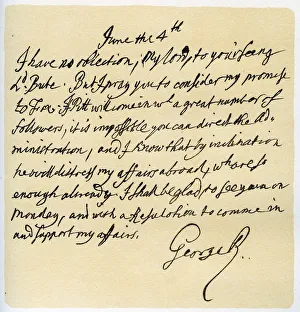 June the 4th
I have no obiection, My lord, to your seeing
Ld. Bute. But I pray you to consider my promise
to Fox. If Pitt will come in wth a great number of
followers, it is impossible you can direct the Ad-
ministration, and I know that by inclination
he will distress my affairs abroad, wh are so
enough already. I shall be glad to see you on
Monday, and with a Resolution to comme in
and support my affairs.
George R.